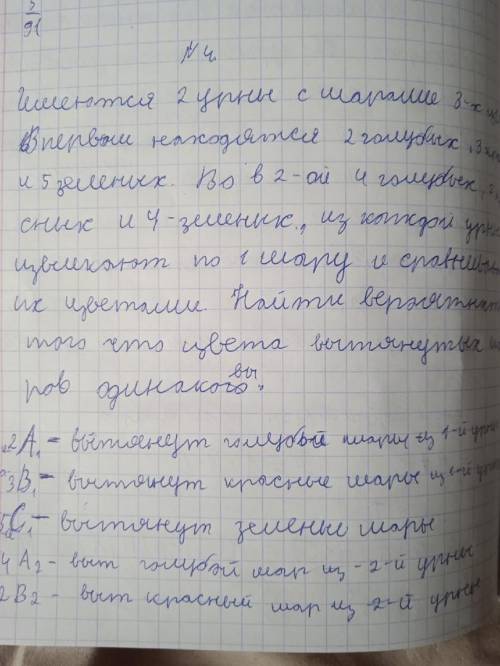 5
91
№4.
Имеются 2 урны с шарами 3-х
В первый находятся 2 голубых, 3
и 5 зеленых. Во в 2-ой 4 голубых,
сных и 4-зеленых., из каждой урны
извлекают по 1 шару и сравнива
их цветами. Найти вероятнос
того что цвета вытянутых
ров одинаковы.
2A₁ - вытянут голубой шары из 1-й урны
3B₁ - вытянут красные шары из 1-й урны
5C₁ - вытянут зеленые шары
4A₂ - выт голубой шар из - 2-й урны
2B₂ - выт красный шар из 2-й урны